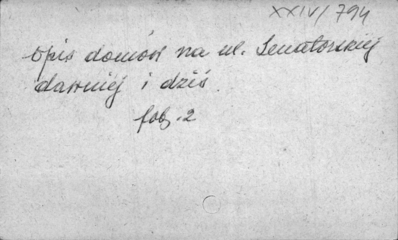 XXIV/794
Opis domów na ul. Senatorskiej
dawniej i dziś.
fol. 2